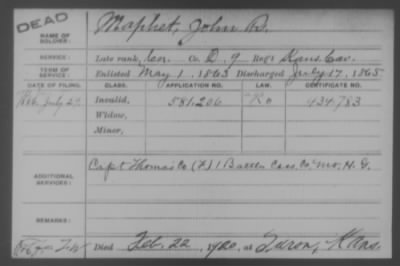 DEAD
NAME OF SOLDIER:
Maphet, John B.
SERVICE:
Late rank, Co. D, 9 Reg't Kans. Cav.
TERM OF SERVICE:
Enlisted May 1, 1863 Discharged July 17, 1865
DATE OF FILING. CLASS. APPLICATION NO. LAW. CERTIFICATE NO.
1886 July 29 Invalid, 581.206 434.783
Widow,
Minor,
ADDITIONAL SERVICES:
Capt Thomas Co (F) 1 Battln Cass Co. Mo. H. G.
REMARKS:
Died Feb. 22, 1920, at Kans.